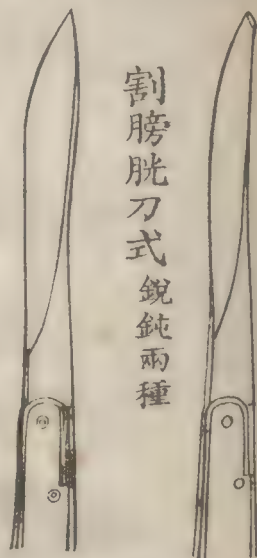 割膀胱刀式 銳鈍兩種